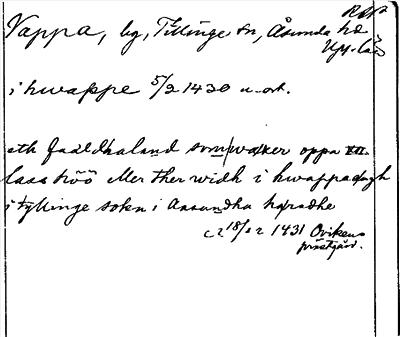 Vappa, by, Tillinge sn, Åsunda hd
Uppl. län
i hwappe 5/2 1430 u. ort.
eth gaaldhaland som waxer oppa
lass höö eller ther widh i hwappa
i tyllinge sokn i Aasundha häradhe
18/12 1431 Ovikens
prästgård.